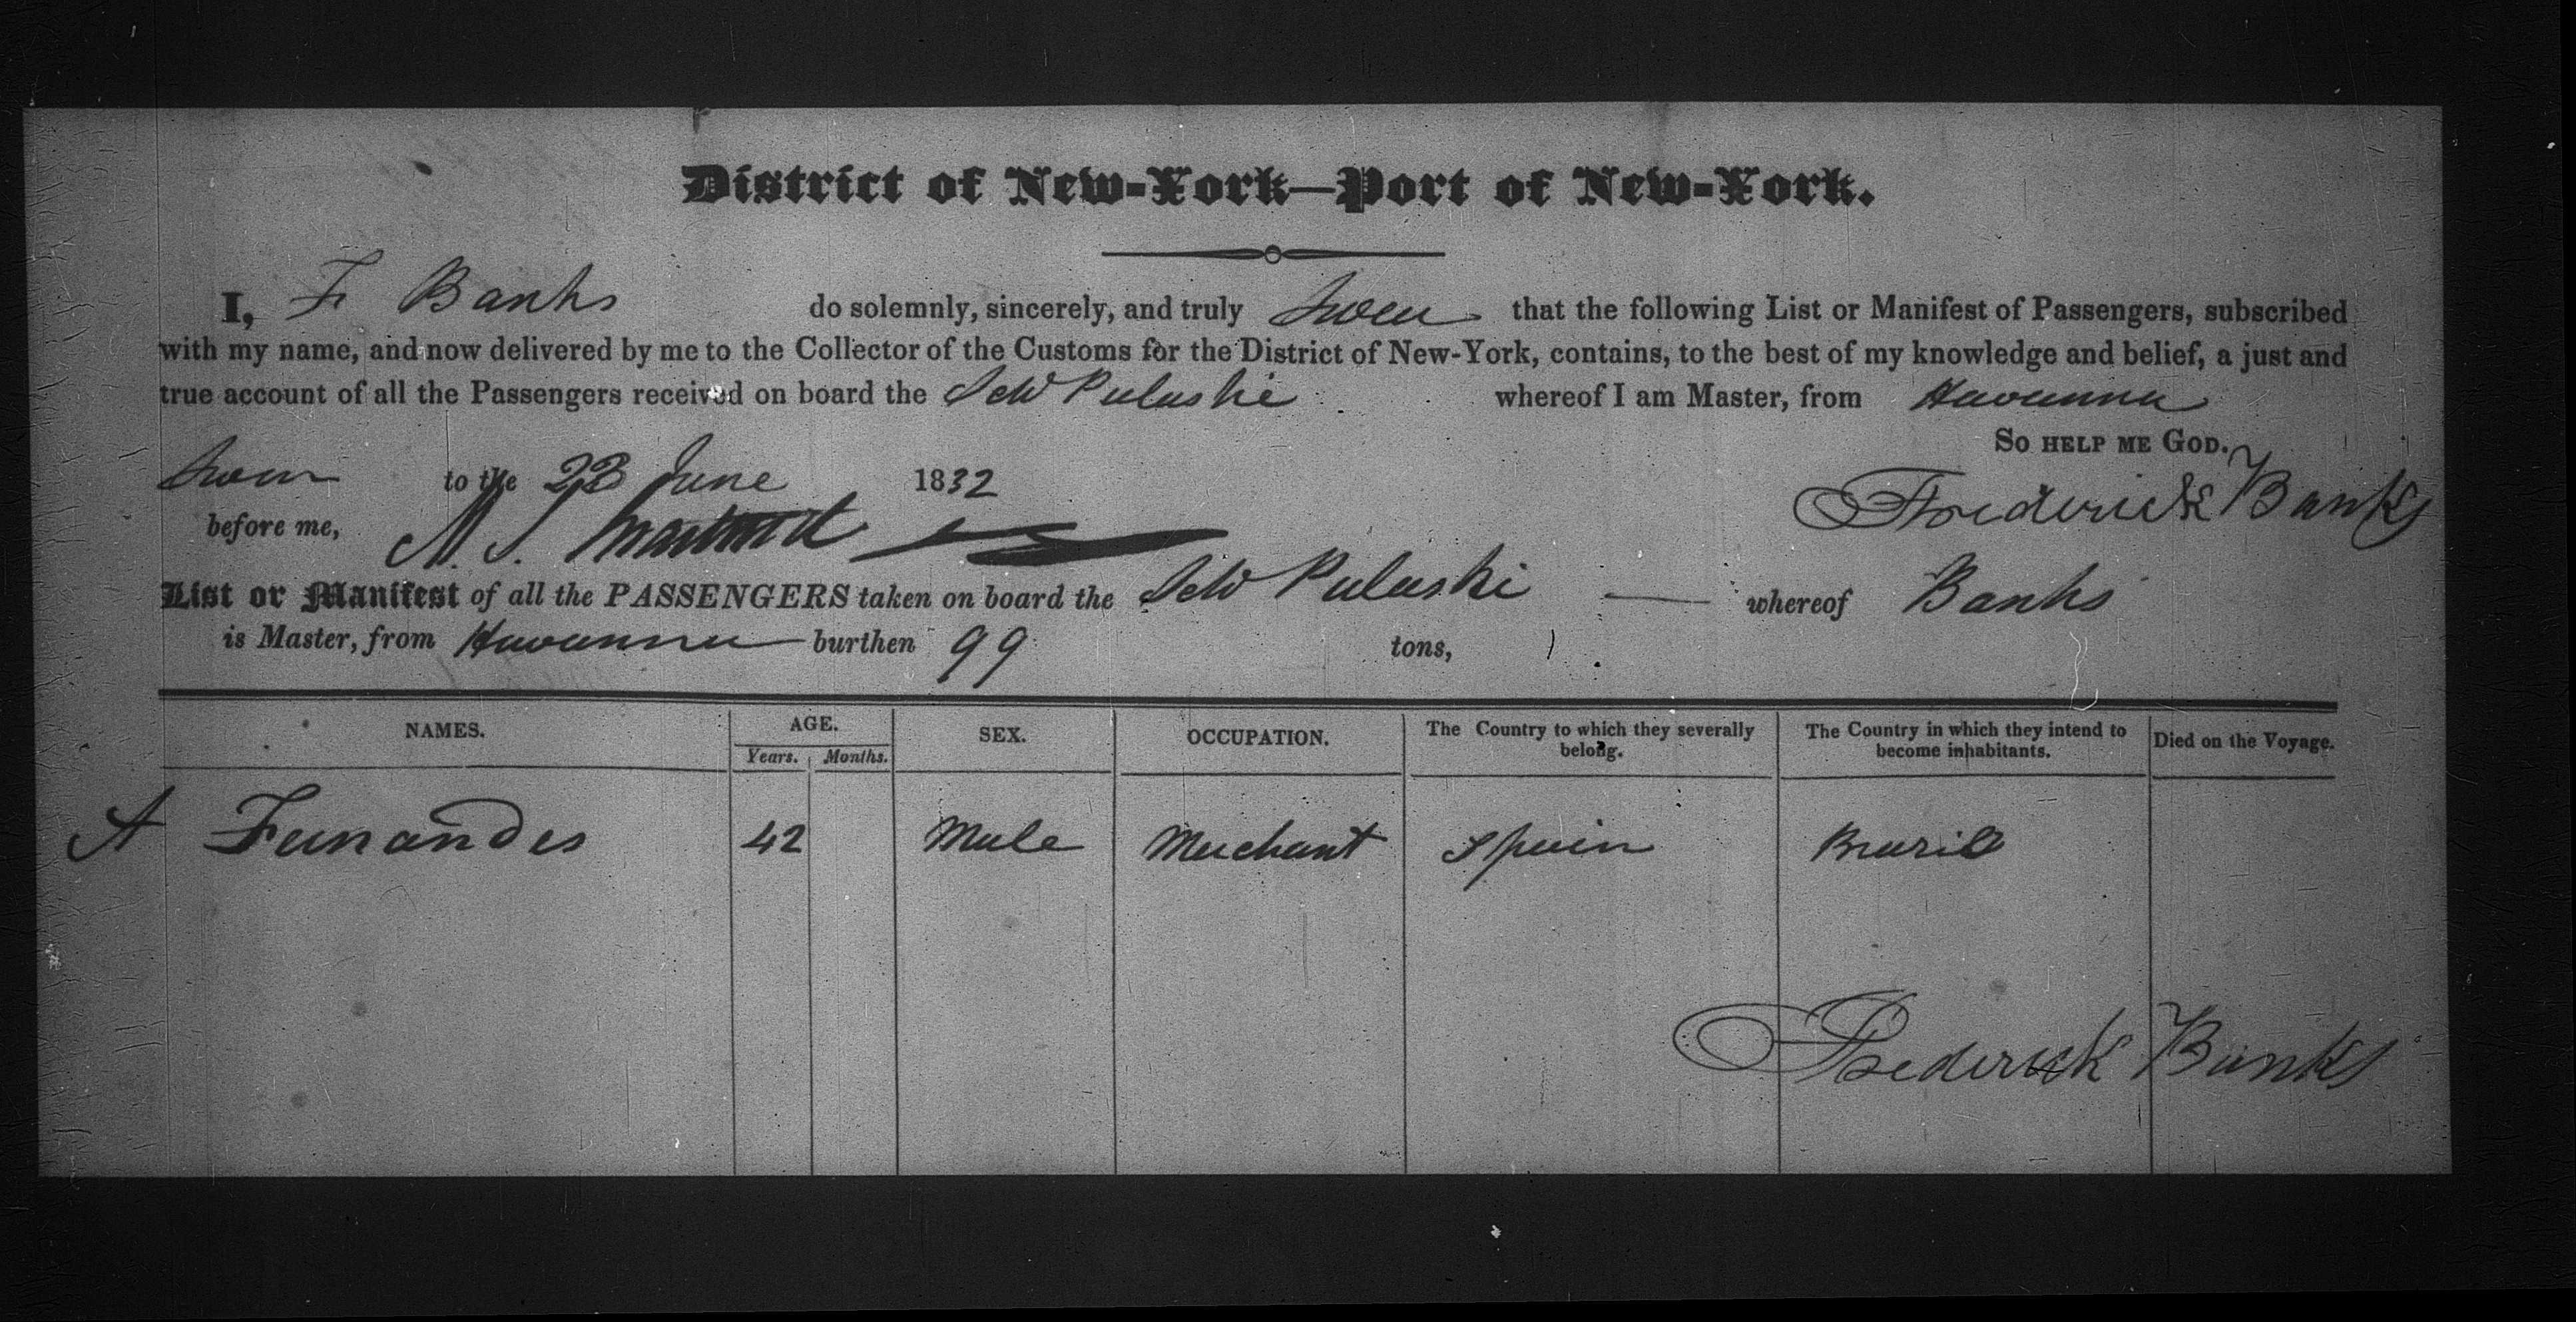 District of New-York—Port of New-York.
I, F Banks do solemnly, sincerely, and truly Swear that the following List or Manifest of Passengers, subscribed
with my name, and now delivered by me to the Collector of the Customs for the District of New-York, contains, to the best of my knowledge and belief, a just and
true account of all the Passengers received on board the Sch Pulaski whereof I am Master, from Havanna
So help me God.
Sworn to the 23 June 1832
Frederick Banks
before me,
List or Manifest of all the PASSENGERS taken on board the Sch Pulaski — whereof Banks
is Master, from Havanna burthen 99 tons,
NAMES. AGE. SEX. OCCUPATION. The Country to which they severally belong. The Country in which they intend to become inhabitants. Died on the Voyage.
Years. Months.
A Fernandes 42 Male Merchant Spain Brazil
Frederick Banks